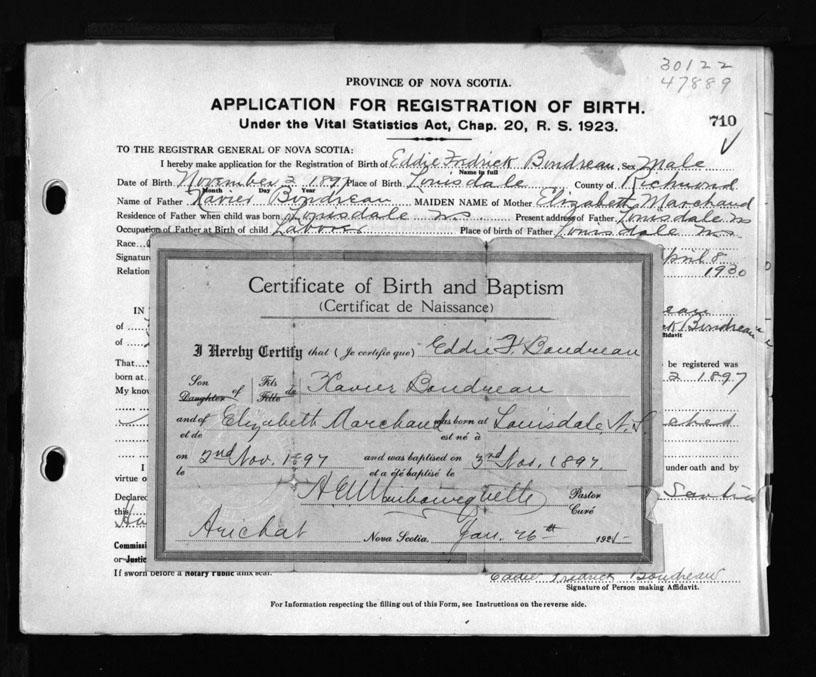 30122
47889
PROVINCE OF NOVA SCOTIA.
APPLICATION FOR REGISTRATION OF BIRTH.
710
Under the Vital Statistics Act, Chap. 20, R. S. 1923.
TO THE REGISTRAR GENERAL OF NOVA SCOTIA:
I hereby make application for the Registration of Birth of Eddie Fredrick Boudreau Sex Male
Name in full
Date of Birth November 2 1897 Place of Birth Louisdale County of Richmond
Month Day Year
Name of Father Xavier Boudreau MAIDEN NAME of Mother Elizabeth Marchand
Residence of Father when child was born Louisdale N.S. Present address of Father Louisdale N.S
Occupation of Father at Birth of child Labourer Place of birth of Father Louisdale N.S.
Race
Signature April 8
Relation 1930
Certificate of Birth and Baptism
(Certificat de Naissance)
IN
of Boudreau
I Hereby Certify that (Je certifie que) Eddie F. Boudreau
Son Daughter of Fils Fille de Xavier Boudreau
and of Elizabeth Marchand was born at Louisdale, N.S.
et de est né à
on 2nd Nov. 1897 and was baptised on 3rd Nov, 1897.
le et a été baptisé le
Pastor
Curé
Arichat Nova Scotia. Jan. 26th 192
That be registered was
born at 2 1897
My know
I under oath and by
virtue o
Declared
this
Commissi
or Justic
If sworn before a Notary Public affix seal.
Eddie Fredrick Boudreau
Signature of Person making Affidavit.
For Information respecting the filling out of this Form, see Instructions on the reverse side.